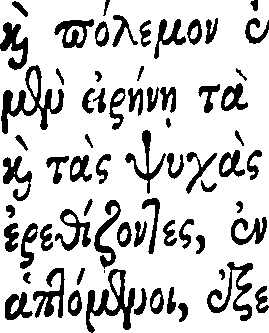 ϗ πόλεμον ἐ
μὲν εἰρήνῃ τὰ
ϗ τὰς ψυχὰς
ἐρεθίζοντες, ἐν
ἁπτόμενοι, ἐξε